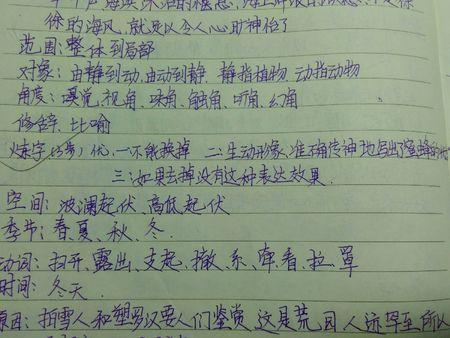 徐的海风,就足以令人心旷神怡了
范围:整体到局部
对象:由静到动,由动到静,静指植物 动指动物
角度:嗅觉,视角、味角、触角、听角、幻角
修辞、比喻
炼字(3步)优,一不能换掉 二:生动形象、准确传神地写出了
三:如果去掉没有这种表达效果
空间:波澜起伏、高低起伏
季节:春、夏、秋、冬.
动词:扫开、露出、支起、撒、系、牵、看、拉、罩
时间:冬天
原因:拍雪人和塑罗汉要人们鉴赏,这是荒园,人迹罕至,所以